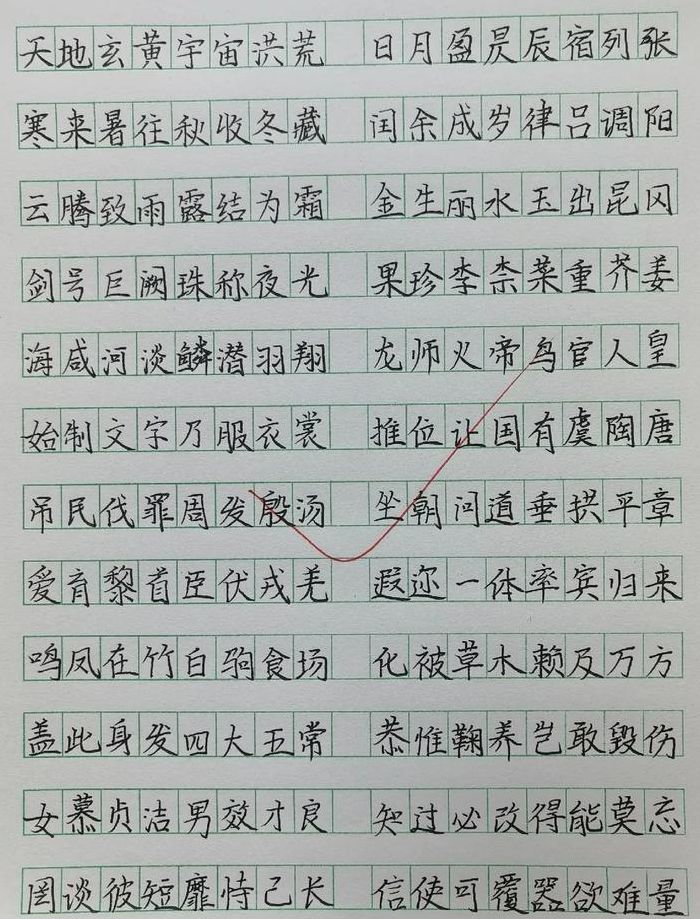 天地玄黄宇宙洪荒 日月盈昃辰宿列张
寒来暑往秋收冬藏 闰余成岁律吕调阳
云腾致雨露结为霜 金生丽水玉出昆冈
剑号巨阙珠称夜光 果珍李柰菜重芥姜
海咸河淡鳞潜羽翔 龙师火帝鸟官人皇
始制文字乃服衣裳 推位让国有虞陶唐
吊民伐罪周发殷汤 坐朝问道垂拱平章
爱育黎首臣伏戎羌 遐迩一体率宾归来
鸣凤在竹白驹食场 化被草木赖及万方
盖此身发四大五常 恭惟鞠养岂敢毁伤
女慕贞洁男效才良 知过必改得能莫忘
罔谈彼短靡恃己长 信使可覆器欲难量